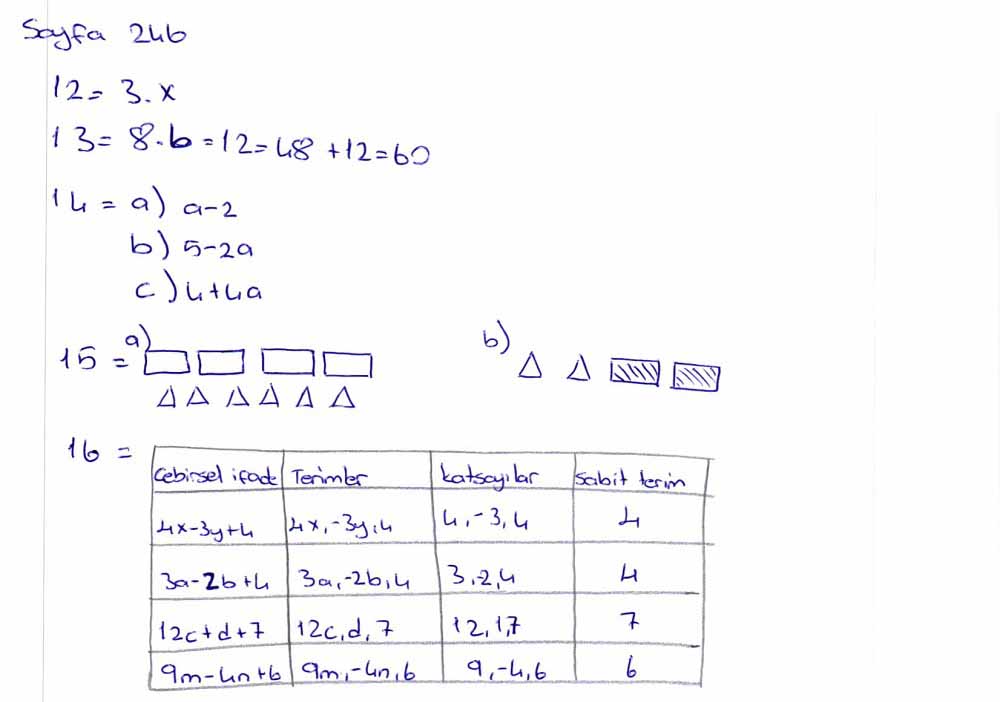 Sayfa 246
12= 3.x
13= 8.6=12=48+12=60
14= a) a-2
b) 5-2a
c) 4+4a
15= a) b)
16=
Cebirsel ifade Terimler katsayılar sabit terim
4x-3y+4 4x,-3y,4 4,-3,4 4
3a-2b+4 3a,-2b,4 3,-2,4 4
12c+d+7 12c,d,7 12,1,7 7
9m-4n+6 9m,-4n,6 9,-4,6 6